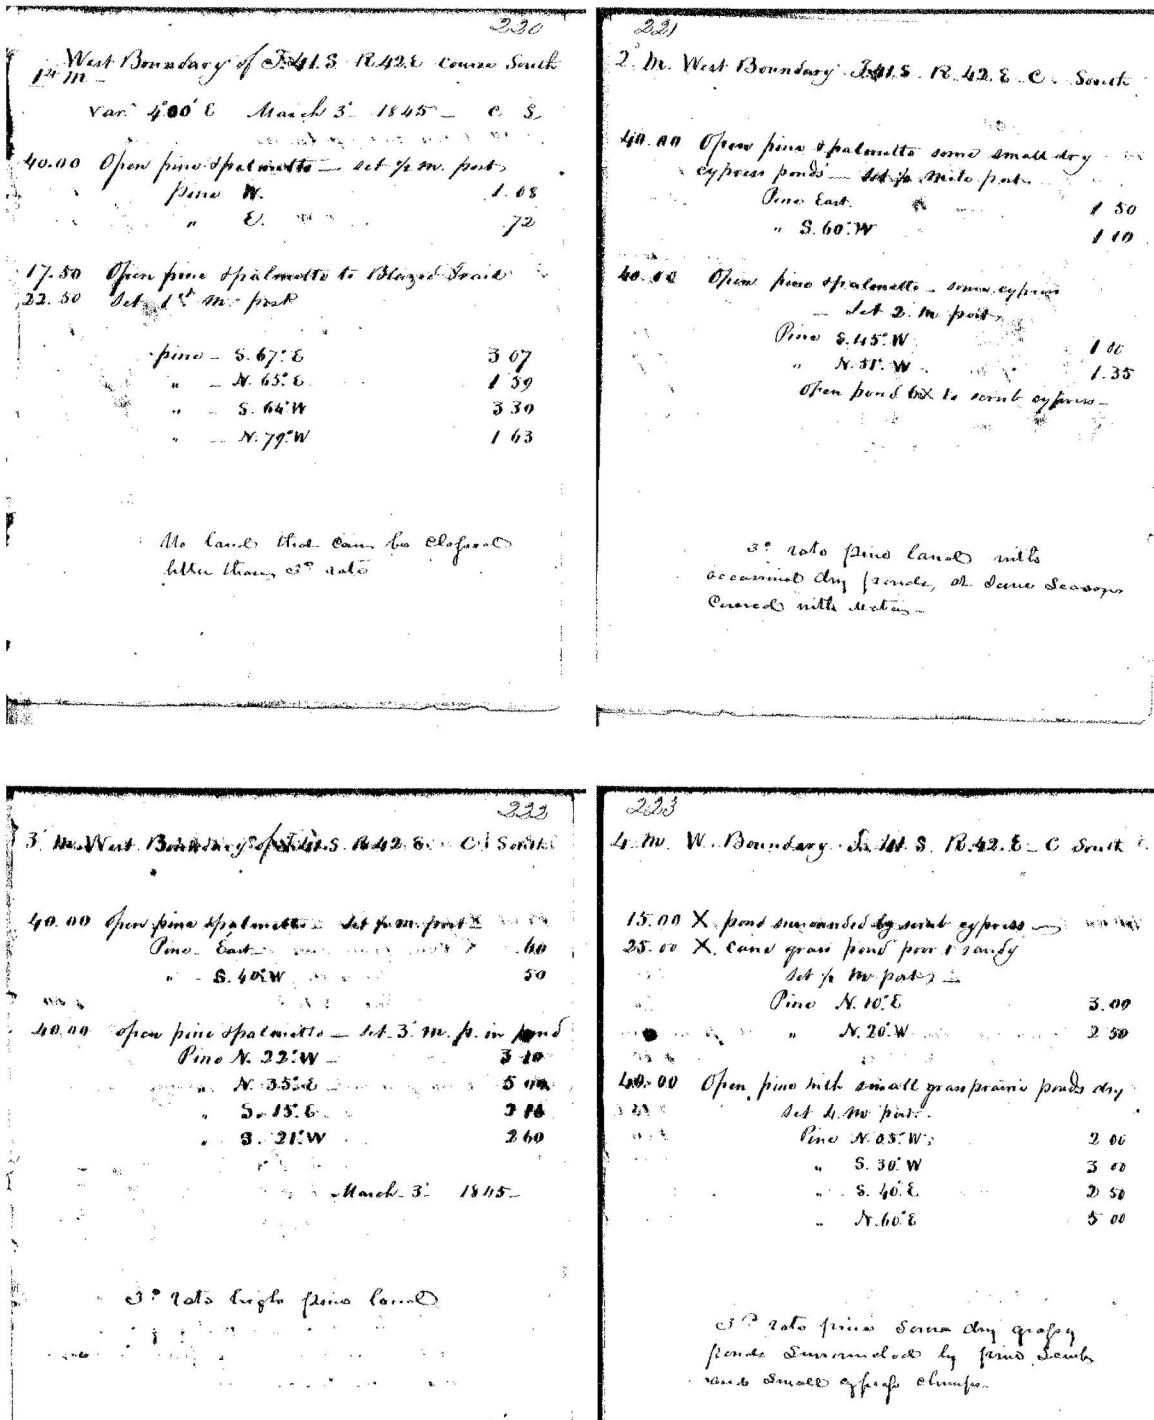 220
West Boundary of T.41.S. R.42.E Course South
1st M
Var. 4°00' E March 3d 1845 — C S.
40.00 Open pine & palmetto — set 1/2 m. post
Pine W. 1.08
" E. .72
17.50 Open pine & palmetto to Blazed Trail
22.50 Set 1st m. post
pine — S. 67° E 3 07
" — N. 65° E 1 59
" — S. 64° W 3 30
" — N. 79° W 1 63
No land that can be classed
better than 3d rate
221
2d M. West Boundary T.41.S. R.42.E C. South
40.00 Open pine & palmetto some small dry
cypress ponds — set 1/2 Mile post
Pine East 1 50
" S. 60° W 1 10
40.00 Open pine & palmetto — some cypress
— Set 2. M post
Pine S. 45° W 1 00
" N. 51° W 1.35
Open pond to scrub cypress —
3d rate pine land with
occasional dry ponds, at some seasons
Covered with water —
222
3d M. West Boundary of T.41.S. R.42.E. C. South
40.00 Open pine & palmetto — set 1/2 m. post
Pine East .60
" S. 40° W 50
40.00 Open pine & palmetto — set 3d m. p. in pond
Pine N. 22° W 3 10
" N. 35° E 5 00
" S. 15° E
" S. 21° W 2 60
March 3d 1845 —
3d rate high pine land
223
4. M. W. Boundary T. 41. S. R.42.E — C South
15.00 X. pond surrounded by scrub cypress —
25.00 X. cane grass pond poor & sandy
set 1/2 M. post —
Pine N. 10° E 3.00
" N. 20° W 2 50
40.00 Open pine with small grass prairie ponds dry
Set 4. M post.
Pine N. 05° W 2 00
" S. 30° W 3 00
" S. 40° E 2 50
" N. 60° E 5 00
3d rate pine some dry grassy
ponds surrounded by pine scrub
and small cypress clumps.